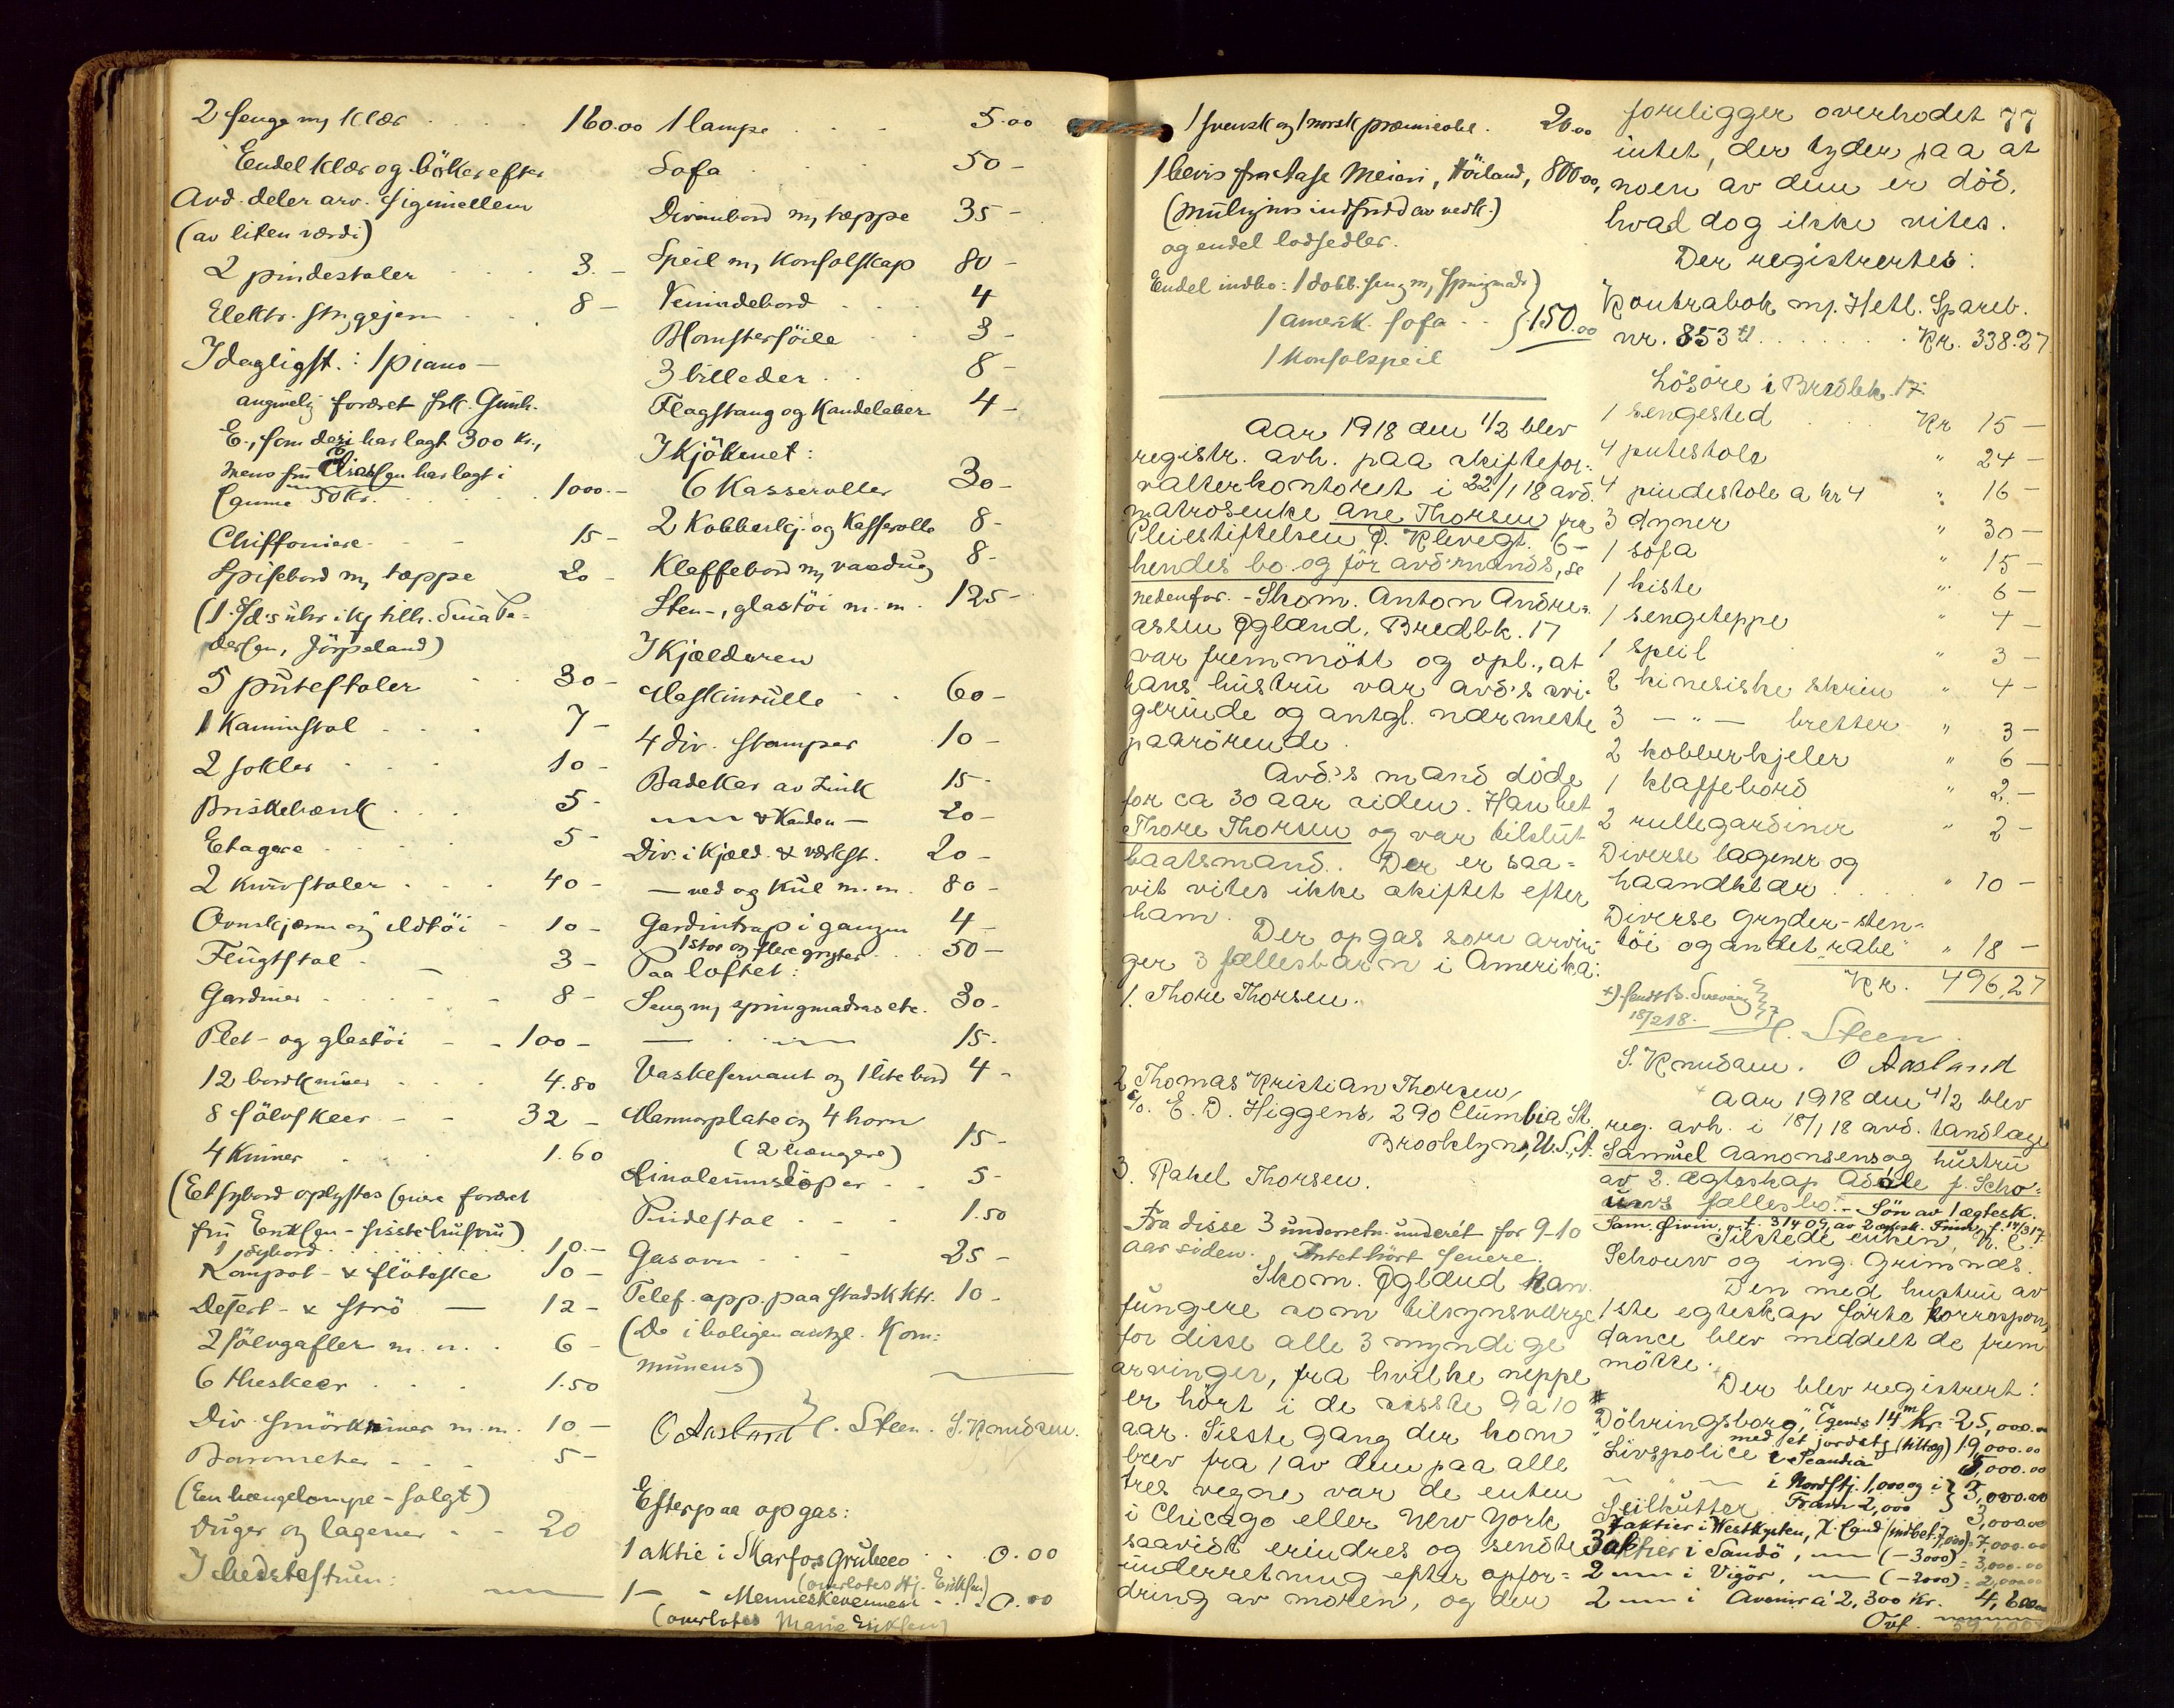 2 senge m/ klær . . . . 160.00
Endel klær og böker efter
Avd. deler arv. sigimellem
(av liten værdi)
2 pindestoler . . . 3.–
Elektr. strygejern . . . 8 –
I dagligst.: 1 piano –
angivelig foræret frk. Gunh.
E., som deri har lagt 300 kr.,
mens fru
har lagt i
samme 50 kr. . . . . 1000.–
Chiffoniere . . . 15 –
Spisebord m/ tæppe 20 –
5 putestoler . . 30 –
1 Kaminstol . . . 7 –
2 sokler . . . 10 –
Briskebænk . . . 5 –
Etagere . . . . 5 –
2 kurvstoler . . . 40 –
Ovnskjærm og ildtöi - 10 –
Flugtstol . – 3 –
Gardiner . . . . - 8 –
Plet- og glastöi – - 100 –
12 bordkniver . . . 4.80
8 sölvskeer – - 32 –
4 kniver . . . 1.60
(Et sybord oplystes foræret
fru Eriksen - sidste hustru)
1 sybord . . . . . . 10.–
Kompot- & flöteske 10 –
Desert- & strö — 12 –
2 sölvgafler m.m. . 6 –
6 theskeer . . . 1.50
Div. smörkniver m.m. 10 –
Barometer - . . . 5 –
(En hængelampe - solgt)
Duger og lagener . . 20
I bedstestuen:
1 lampe . . . 5.00
Sofa . . . 50 –
Divanbord m/ tæppe 35 –
Speil m/ konsolskap 80 –
Venindebord . . . 4
Blomstersöile . . 3 –
3 billeder . . 8 –
Flagstang og Kandelaber 4 –
I kjökenet:
6 Kasseroller 30 –
2 Kobberkj. og Kasserolle 8 –
Klaffebord m/ voxdug 8 –
Sten-, glastöi m.m. . 125 –
I kjælderen
Maskinrulle . . 60 –
4 div. stamper 10 –
Badekar av zink 15 –
20 –
Div. i kjæld. & værkst. 20 –
— ved og kul m.m. 80 –
Gardintrap i gangen 4 –
1 stor og flere gryter . . 50 –
Paa loftet:
Seng m/ springmadras etc. 30 –
15 –
Vaskeservant og 1 lite bord 4 –
Marmorplate og 4 horn
(2 hængere) 15 –
Linoleumslöper . . 5 –
Pindestol . . . 1.50
Gasovn . . . 25 –
Telef. app. paa stadsk ktr. 10 –
(De i boligen antgl. Kom-
munens)
O Aasland C. Steen. S. Knudsen.
Efterpaa opgas:
1 aktie i Skarfos Grubeco . . 0.00
(overlotes Hj. Eriksen)
1 – - Menneskevennen - . 0.00
(overlotes Marie Eriksen)
1 svensk og 1 norsk præmieobl. 20.00
1 bevis fra Aase Meieri, Höiland, 800.00,
(muligens indfridd av vedk.)
og endel lodsedler.
Endel indbo: 1 dobb. seng m/ springmadr.
1 amerik. sofa . . } 150.00
1 konsolspeil
Aar 1918 den 4/2 blev
registr. avh. paa skiftefor-
valterkontoret i 22/1 18 avd.
matrosenke Ane Thorsen fra
Pleiestiftelsen Ø. Klevegt. 6 –
hendes bo og för avd. mands, se
nedenfor. - Skom. Anton Andre-
assen Øgland, Bredbk. 17
var fremmött og opl., at
hans hustru var avd's svi-
gerinde og antgl. nærmeste
paarörende.
Avd's mand döde
for ca 30 aar siden. Han het
Thore Thorsen og var tilslut
baatsmand. Der er saa-
vit vites ikke skiftet efter
ham.
Der opgas som arvin-
ger 3 fællesbarn i Amerika:
1. Thore Thorsen.
2 Thomas Kristian Thorsen,
c/o. E. D. Higgens, 290 Clumbia St.
Brooklyn, U.S.A.
3. Rakel Thorsen.
Fra disse 3 underretn. underet for 9-10
aar siden. Intet hört senere.
Skom. Øgland kan
fungere som tilsynsværge
for disse alle 3 myndige
arvinger, fra hvilke neppe
er hört i de sisste 9 a 10
aar. Sisste gang der kom
brev fra 1 av dem paa alle
tres vegne var de enten
i Chicago eller New York
saavidt erindres og sendte
underretning efter opfor-
dring av moren, og der
77
foreligger overhodet
intet, der tyder paa at
noen av dem er död,
hvad dog ikke vites.
Der registrertes:
Kontrabok m/ Hetl. Spareb.
nr. 853 +) . . . . . . . Kr. 338.27
Lösöre i Bredbk. 17:
1 sengested . . . Kr 15 –
4 putestole " 24 –
4 pindestole a kr 4 " 16 –
3 dyner " 30 –
1 sofa " 15 –
1 kiste " 6 –
1 sengeteppe " 4 –
1 speil " 3 –
2 kinesiske skrin " 4 –
3 — " — bretter " 3 –
2 kobberkjeler " 6 –
1 klaffebord " 2.–
2 rullegardiner " 2 –
Diverse lagener og
haandklær . . . . " 10 –
Diverse gryder- sten-
töi og andet "rabe" " 18 –
Kr. 496,27
18/2 18.
C. Steen
S. Knudsen. O Aasland
Aar 1918 den 4/2 blev
reg. avh. i 18/1 18 avd. tandlæge
Samuel Aanonsens og hustru
av 2. ægteskap Adele f. Scho-
uws fællesbo. - Sön av 1 ægtesk.
Tilstede enken,
Schouw og ing. Grimnæs.
Den med hustru av
1ste egteskap förte korrespon-
dance blev meddelt de frem
mötte.
Der blev registrert:
"Döhringsborg," Egenes 14 m Kr. 25,000.00
med et jordst. (tillæg) 19,000.00
Livspolice i Scandia 5,000.00
i Nordstj. 1,000 og i
Fram 2,000 } 3,000.00
Seilkutter 3,000.00
7 aktier i Westkysten, = 7,000.00
3 aktier i Sandö, (– 3000) = 3,000.00
2 i Vigör, (– 2000) = 2,000.00
2 i Avenir à 2,300 kr. 4,600.00
Ovf.